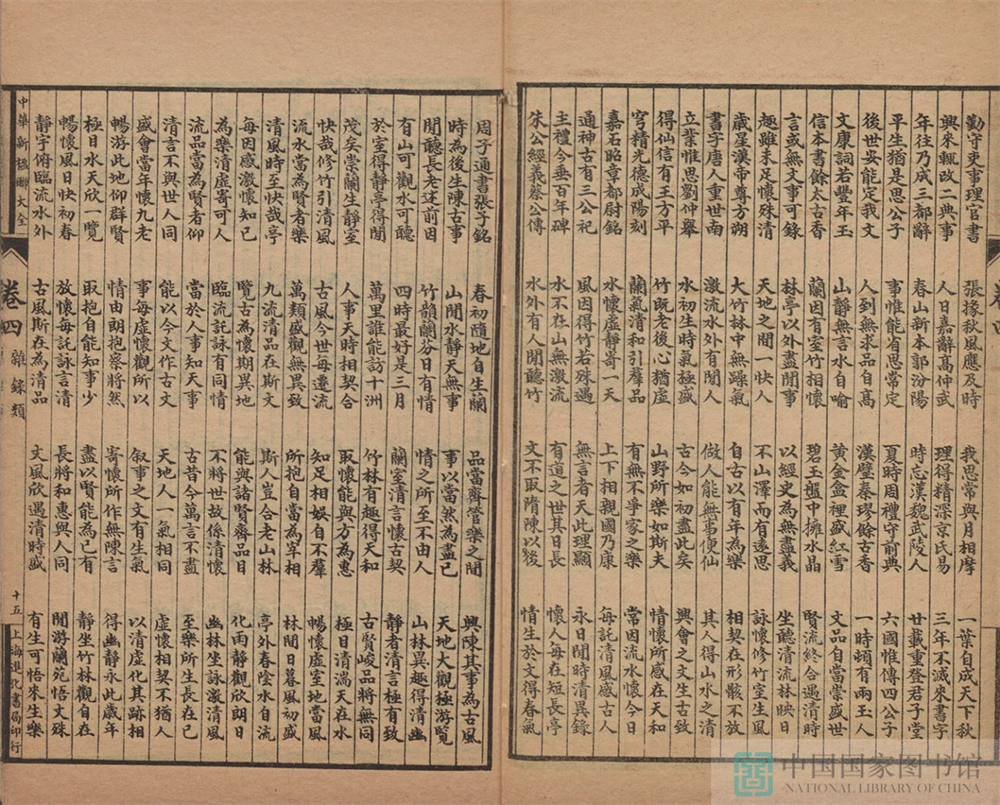 勤守吏事理官書
興來輒改二典事
年往乃成三都辭
平生猶是思公子
後世安能定我文
文康詞若豐年玉
信本書餘太古香
言或無文事可錄
趣雖未足懷殊清
歲星漢帝尊方朔
書字唐人重世南
立業惟思劉仲舉
得仙信有王方平
穹精光德成陽刻
嘉石昭章都尉銘
通神古有三公祀
主禮今垂百年碑
朱公經義蔡公傳
周子通書張子銘
時為後生陳古事
閒聽長老述前因
有山可觀水可聽
於室得靜亭得閒
茂矣崇蘭生靜室
快哉修竹引清風
流水當為賢者樂
清風時至快哉亭
每因感激懷知己
為樂清虛寄可人
流品當為賢者仰
清言不與世人同
盛會當年懷九老
暢游此地仰群賢
極目水天欣一覽
暢懷風日快初春
靜宇俯臨流水外
張掾秋風應及時
人日嘉辭高仲武
春山新本郭汾陽
事惟能省思常定
人到無求品自高
山靜無言水自喻
蘭因有室竹相懷
林亭以外盡閒事
天地之間一快人
大竹林中無躁氣
激流水外有閒人
水初生時氣極盛
竹既老後心猶虛
蘭氣清和引羣品
水懷虛靜寄一天
風因得竹若殊遇
水不在山無激流
水外有人閒聽竹
春初隨地自生蘭
山閒水靜天無事
竹韻蘭芬日有情
四時最好是三月
萬里誰能訪十洲
人事天時相契合
古風今世每遷流
萬類盛觀無異致
九流清品在斯文
覽古為懷期異地
臨流託詠有同情
當於人事知天事
能以今文作古文
事每虛懷觀所以
情由朗抱察將然
取抱自能知事少
放懷每託詠言清
古風斯在為清品
我思常與月相摩
理得精深京氏易
時忘漢魏武陵人
夏時周禮守前典
漢璧秦璆餘古香
黃金盒裡盛紅雪
碧玉盤中擁水晶
以經史為無盡義
不山澤而有遂思
自古以有年為樂
做人能無事便仙
古今如初盡此矣
山野所樂如斯夫
有無不爭家之樂
上下相親國乃康
無言者天此理顯
有道之世其日長
文不取隋陳以後
品當齊管樂之間
事以當然為盡己
情之所至不由人
蘭室清言懷古契
竹林有趣得天和
取懷能與方為惠
知足相娛自不羣
所抱自當為宰相
斯人豈合老山林
能與諸賢齊品日
不將世故係清懷
古昔今萬言不盡
天地人一氣相同
叙事之文有生氣
寄懷所作無陳言
盡以賢能為己有
長將和惠與人同
文風欣遇清時盛
一葉自成天下秋
三年不滅來書字
廿載重登君子堂
六國惟傳四公子
一時頓有兩王人
文品自當崇盛世
賢流終合遇清時
坐聽清流林映日
詠懷修竹室生風
相契在形骸不放
其人得山水之清
興會之文生古致
情懷所感在天和
常因流水懷今日
每託清風感古人
永日閒時清異錄
懷人每在短長亭
情生於文得春氣
興陳其事為古風
天地大觀極游覽
山林異趣得清幽
靜者清言極有致
古賢峻品將無同
極目清湍天在水
暢懷虛室地當風
林間日暮風初盛
亭外春陰水自流
化雨靜觀欣朗日
幽林坐詠激清風
至樂所生長在己
虛懷相契不猶人
以清虛化其跡相
得幽靜永此歲年
靜坐竹林觀自在
閒游蘭苑悟文殊
有生可悟來生樂
中華新楹聯大全
卷四 雜錄類
十五
上海進化書局印行
中国国家图书馆
NATIONAL LIBRARY OF CHINA